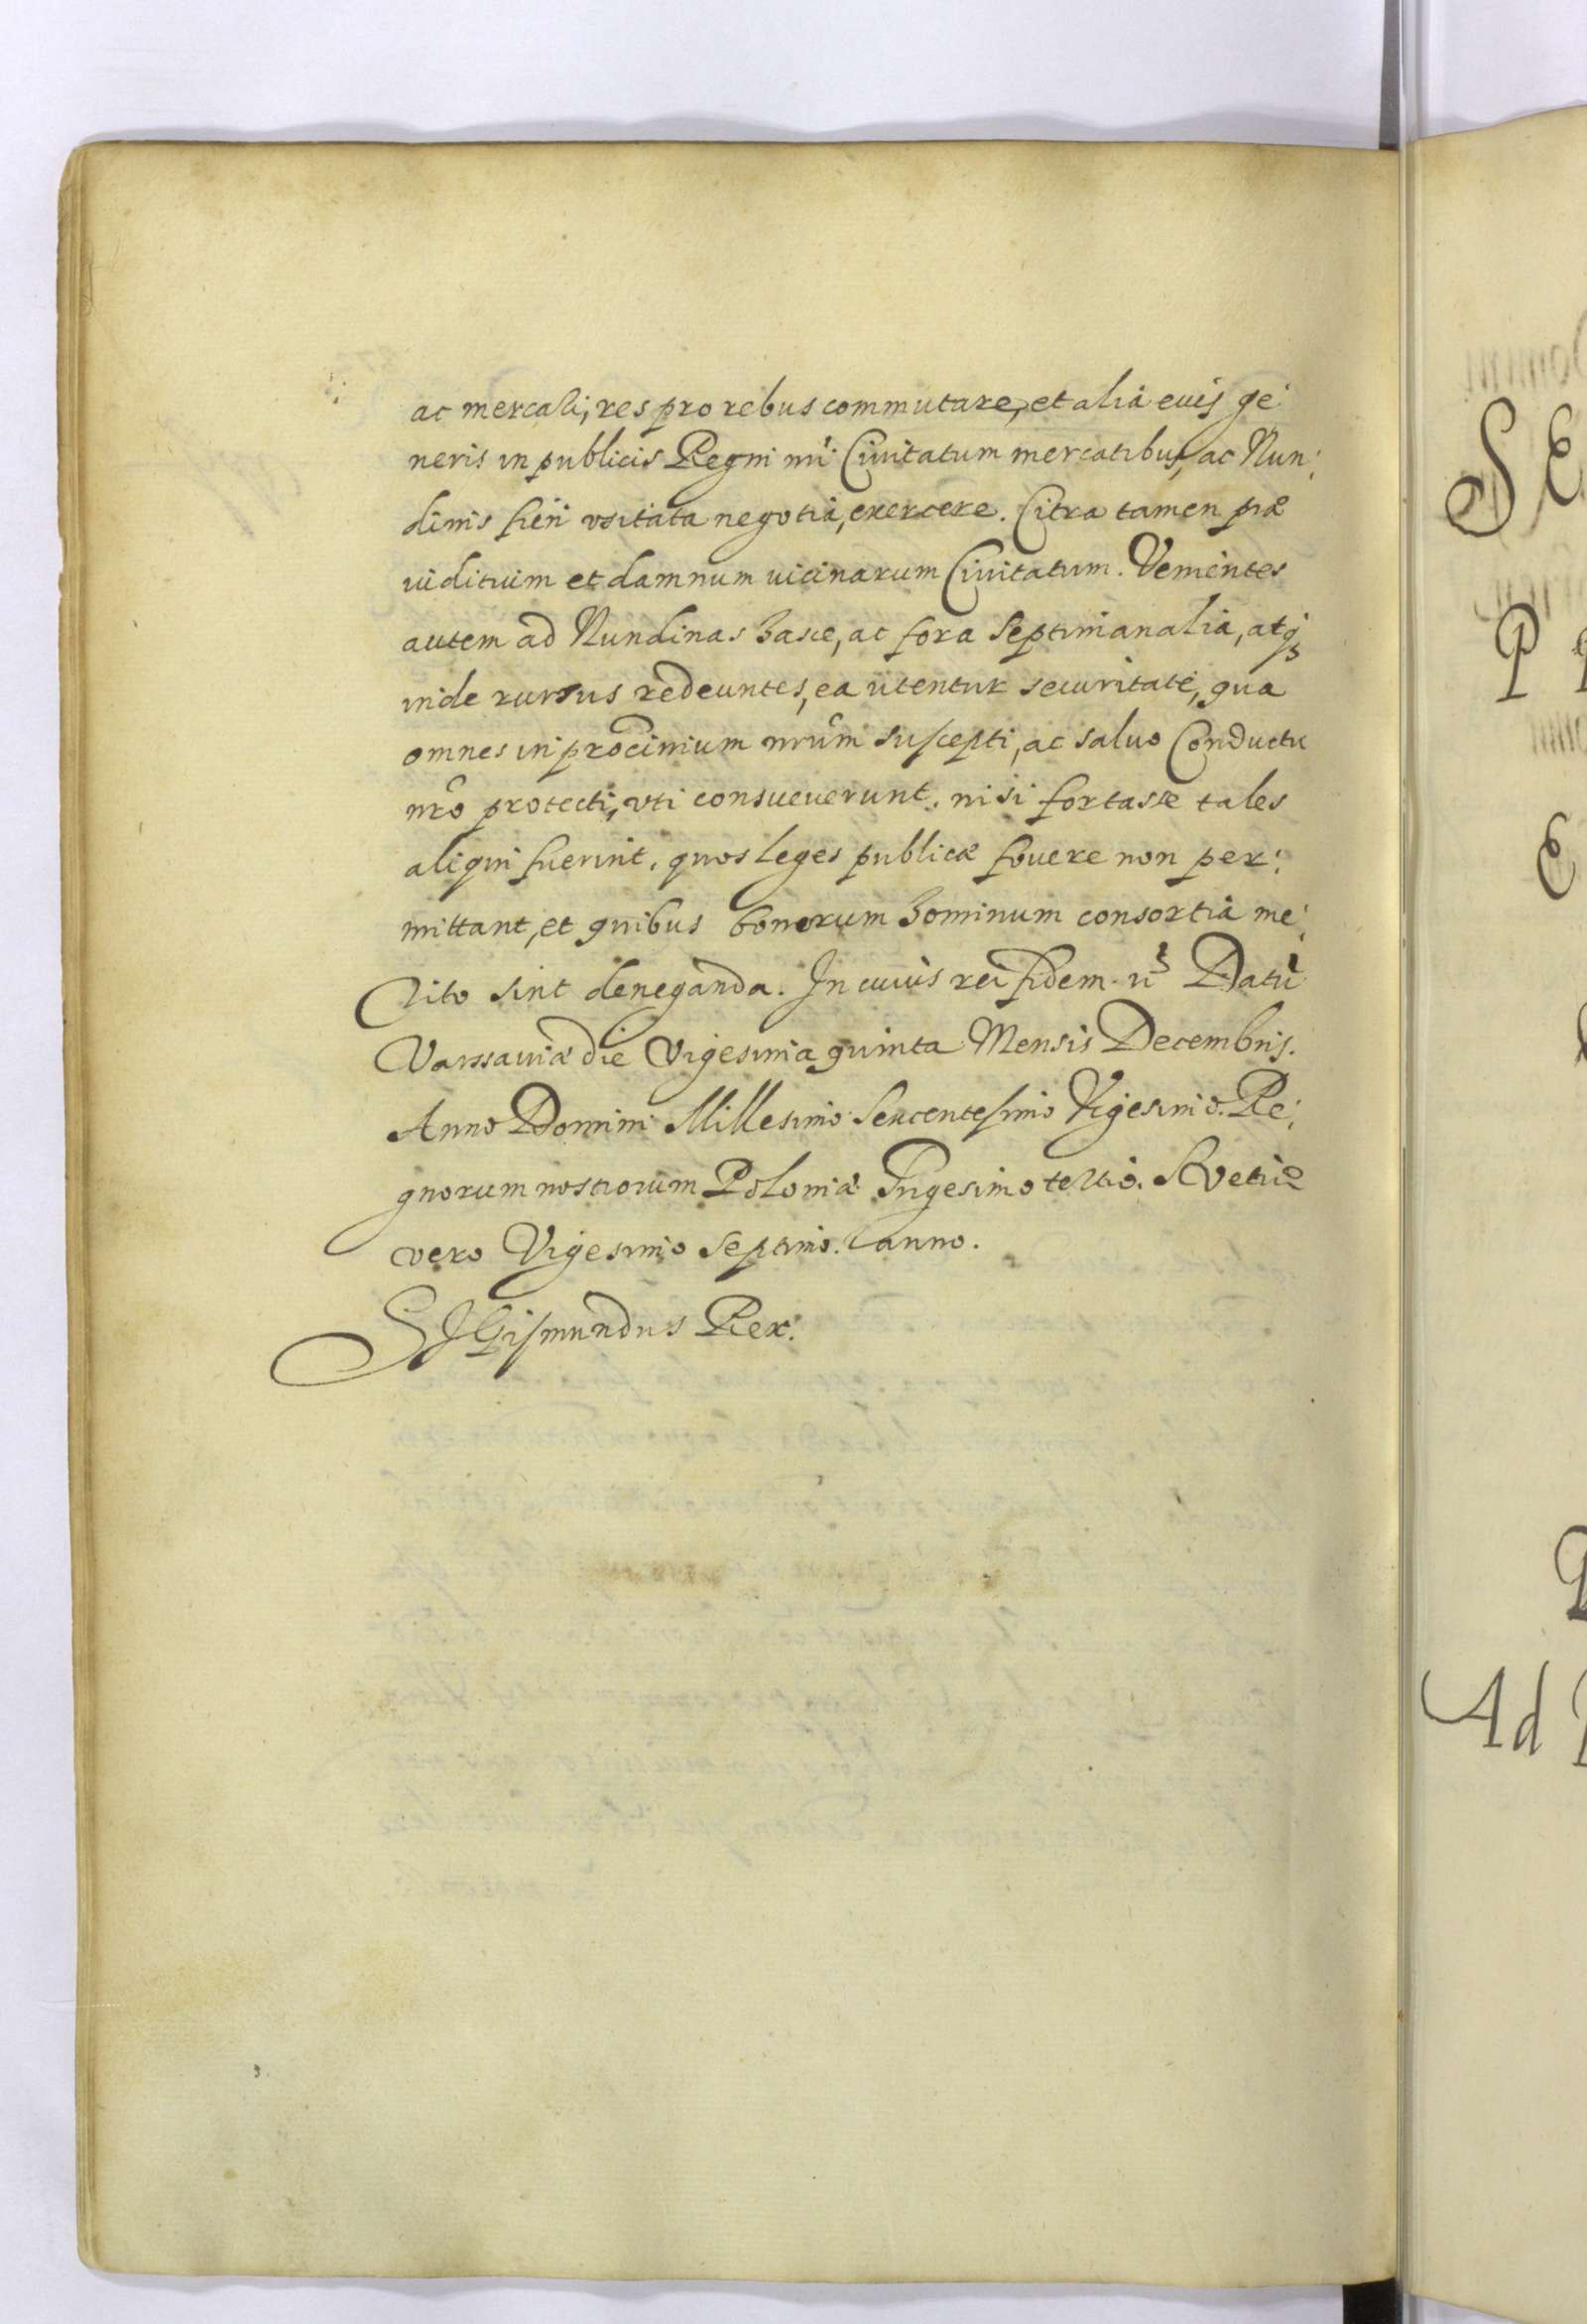 ac mercari, res pro rebus commutare, et alia euis ge:
neris in publicis Regni nri Ciuitatum mercatibus, ac Nun:
dinis fieri vsitata negotia, exercere. Citra tamen præ
iuditium et damnum uicinarum Ciuitatum. Venientes
autem ad Nundinas hasce, ac fora Septimanalia, atq;
inde rursus redeuntes, ea utentur securitate, qua
omnes in procinium nrum suscepti, ac saluo Conductu
nro protecti, vti consueuerunt, nisi fortasse tales
aliqui fuerint, quos leges publicæ fouere non per:
mittant, et quibus bonorum hominum consortia me:
rito sint deneganda. In cuius rei fidem Datu
Varssauiæ die Vigesima quinta Mensis Decembris.
Anno Domini Millesimo Sexcentesimo Vigesimo. Re:
gnorum nostrorum Poloniæ Trigesimo tertio. Svetiæ
vero Vigesimo Septimo. anno.
SIGismundus Rex.
SE
P
E
Ad